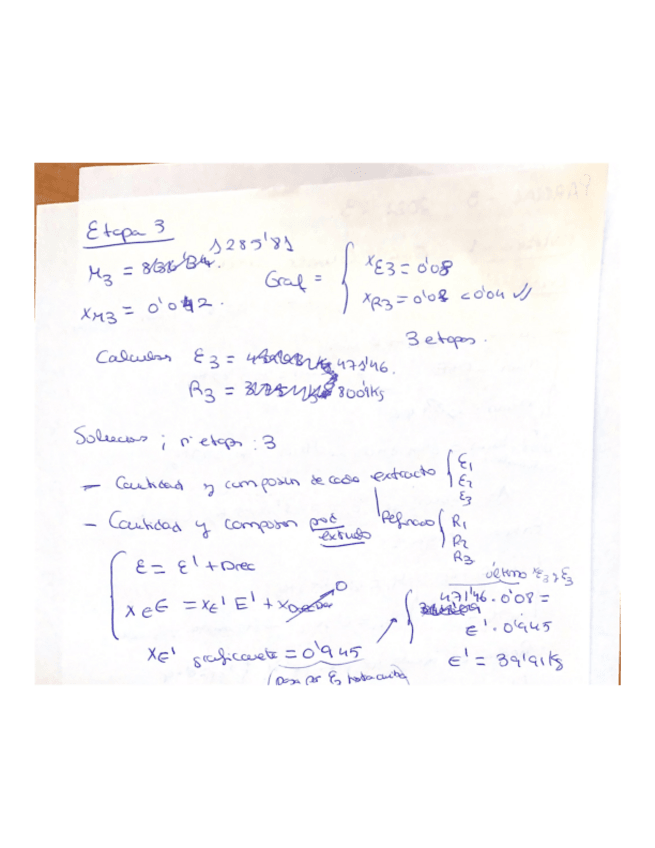 Etapa 3
1285'81
M3 =
xM3 = 0'042.
Graf =
xE3 = 0'08
xR3 = 0'02 < 0'04
3 etapas.
Calculas E3 = 471'46.
R3 = 800'9 Kg
Solucion ; nº etapas : 3
- Cantidad y composin de cada extracto E1
E2
E3
- Cantidad y composin prod extracto
Refinado R1
R2
R3
E = E' + Drec
xE E = xE' E' + 0
último xE3 y E3
471'46 · 0'08 =
E' · 0'945
xE' graficamente = 0'945
E' = 39'91 Kg
(pasa por E3